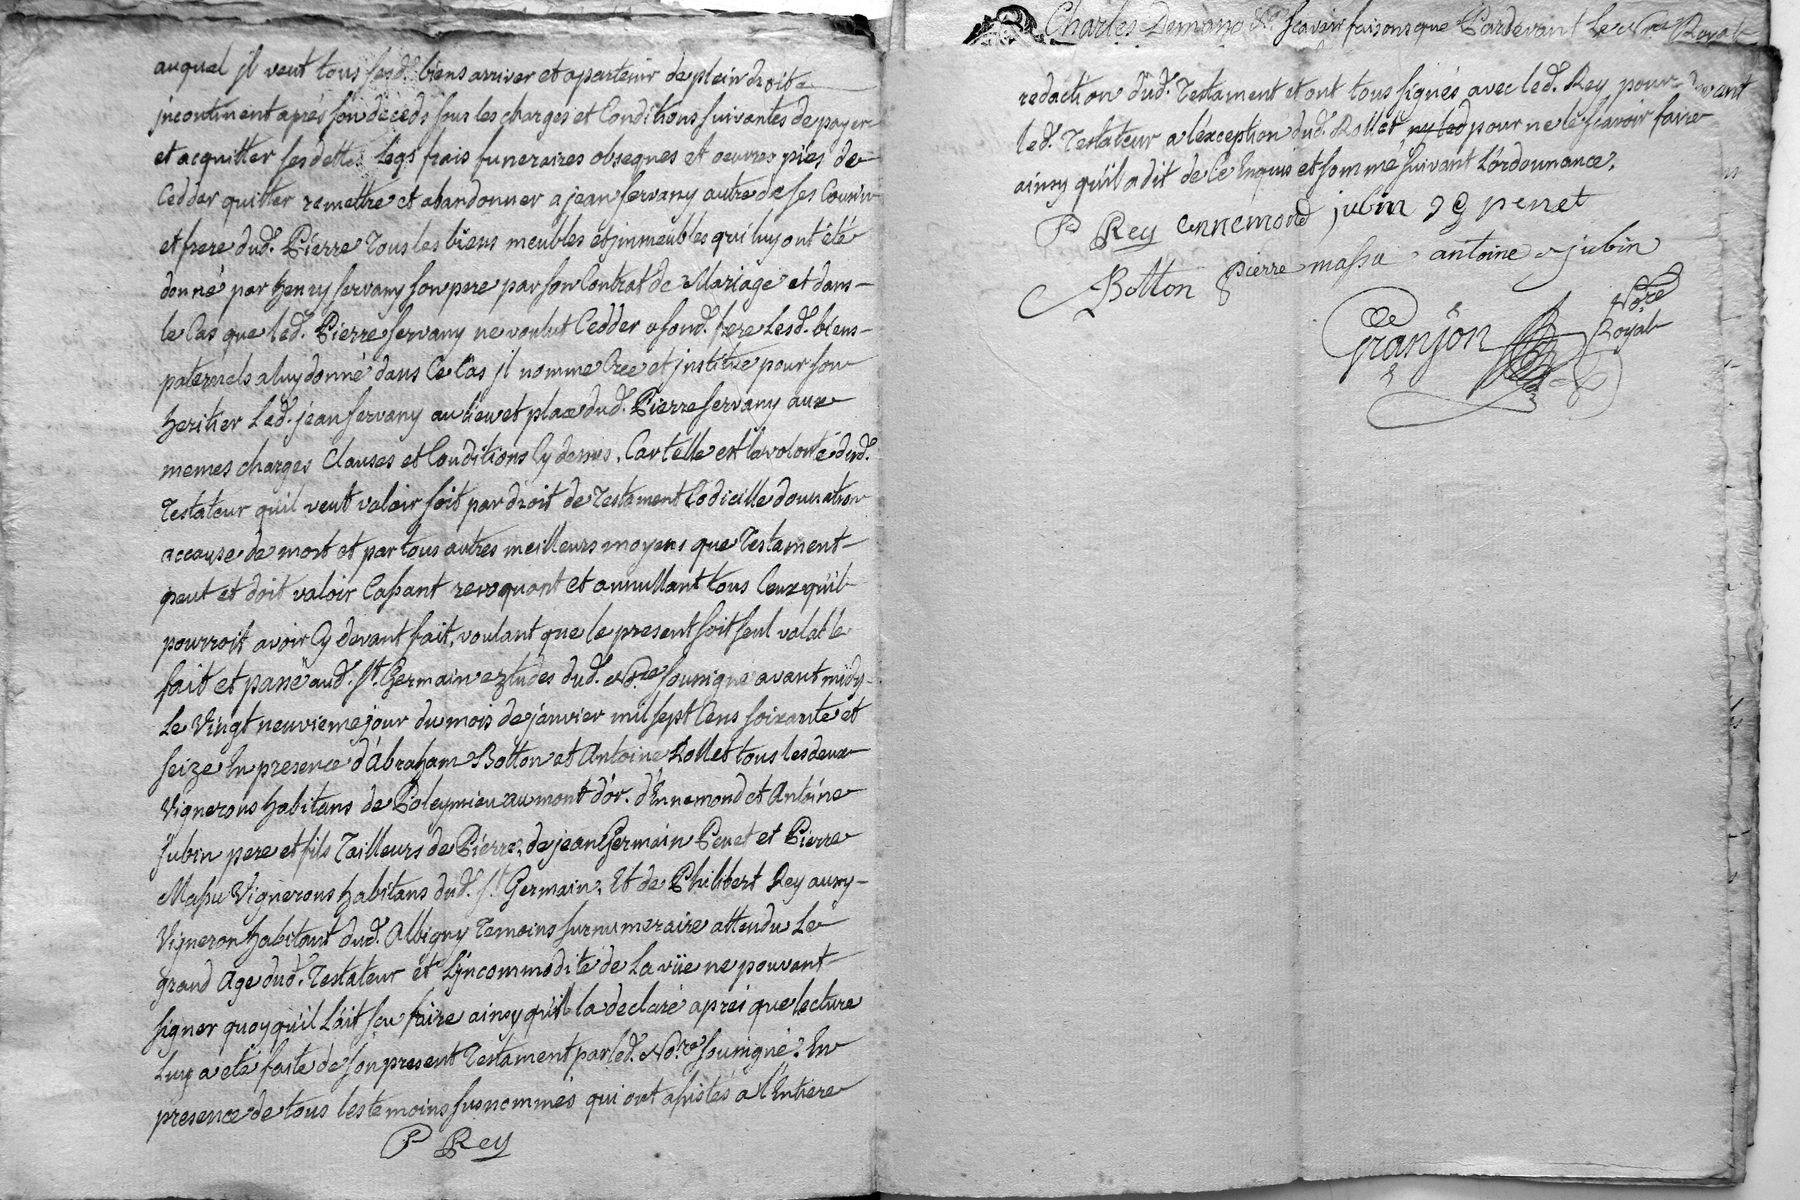 auquel jl veut tous sesd. biens arriver et apartenir de plein droit
jncontinent aprés son deceds sous les charges et Conditions suivantes de payer
et acquitter ses dettes legs frais funeraires obseques et oeuvres pies de
Cedder quitter remettre et abandonner a jean servany autre de ses Cousin
et frere dud. Pierre Tous les biens meubles et jmmeubles qui luy ont été
donné par henry servany son pere par son Contrat de Mariage et dans
le Cas que led. Pierre servany ne voulut Cedder a sond. frere lesd. biens
paternels a luy donné dans ce Cas jl nomme Crée et jnstitüe pour son
heritier led. jean servany au lieu et place dud. Pierre servany aux
memes charges Clauses et Conditions Cy dessus, Car telle est la volonté dud.
Testateur quil veut valoir soit par droit de Testament Codicille donnation
accause de mort et par tous autres meilleurs moyens que Testament
peut et doit valoir Cassant revoquant et annullant tous Ceux qu'il
pourroit avoir Cy devant fait, voulant que le present soit seul valable
fait et passé aud. st. Germain eztudes dud. No.re soussigné avant midy
Le Vingt neuvieme jour du mois de janvier mil sept Cens soixante et
seize En presence d'Abraham Botton et Antoine Rollet tous les deux
Vignerons habitans de Poleymieu au mont d'or. d'Ennemond et Antoine
Jubin pere et fils Tailleurs de Pierre, de jean Germain Penet et Pierre
Massu Vignerons habitans dud. st. Germain, Et de Philibert Rey aussy
Vigneron habitant dud. Albigny Temoins surnumeraire attendu Le
grand Age dud. Testateur et L'jncommodité de La vüe ne pouvant
signer quoyqu'il L'ait sçu faire ainsy qu'il la declaré aprés que lecture
Luy a eté faite de son present Testament par led. No.re soussigné. En
presence de tous les temoins susnommés qui ont assistés a l'Entiere
P Rey
Charles Demano &a sçavoir faisons que Pardevant le No.re Royal
redaction dud. Testament et ont tous signés avec led. Rey pour devant
led. Testateur a l'exception dud. Rollet ny led pour ne le sçavoir faire
ainsy qu'il a dit de ce Enquis et sommé suivant L'ordonnance.
P Rey ennemond jubin J G penet
Botton pierre massu antoine jubin
Granjon No.re
Royal